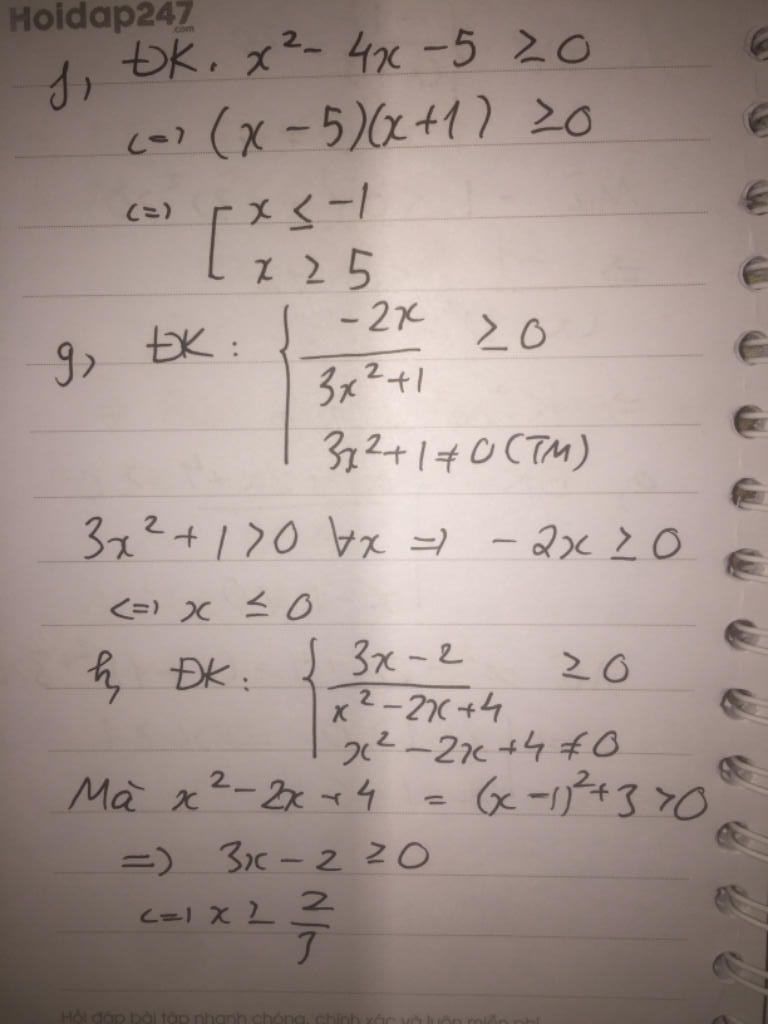 Hoidap247
.com
f, ĐK. x² - 4x - 5 ≥ 0
<=> (x - 5)(x + 1) ≥ 0
<=> [ x ≤ -1
x ≥ 5
g, ĐK: { -2x / 3x² + 1 ≥ 0
3x² + 1 ≠ 0 (TM)
3x² + 1 > 0 ∀x => - 2x ≥ 0
<=> x ≤ 0
h, ĐK: { 3x - 2 / x² - 2x + 4 ≥ 0
x² - 2x + 4 ≠ 0
Mà x² - 2x + 4 = (x - 1)² + 3 > 0
=> 3x - 2 ≥ 0
<=> x ≥ 2/3
Hỏi đáp bài tập nhanh chóng, chính xác và luôn miễn phí